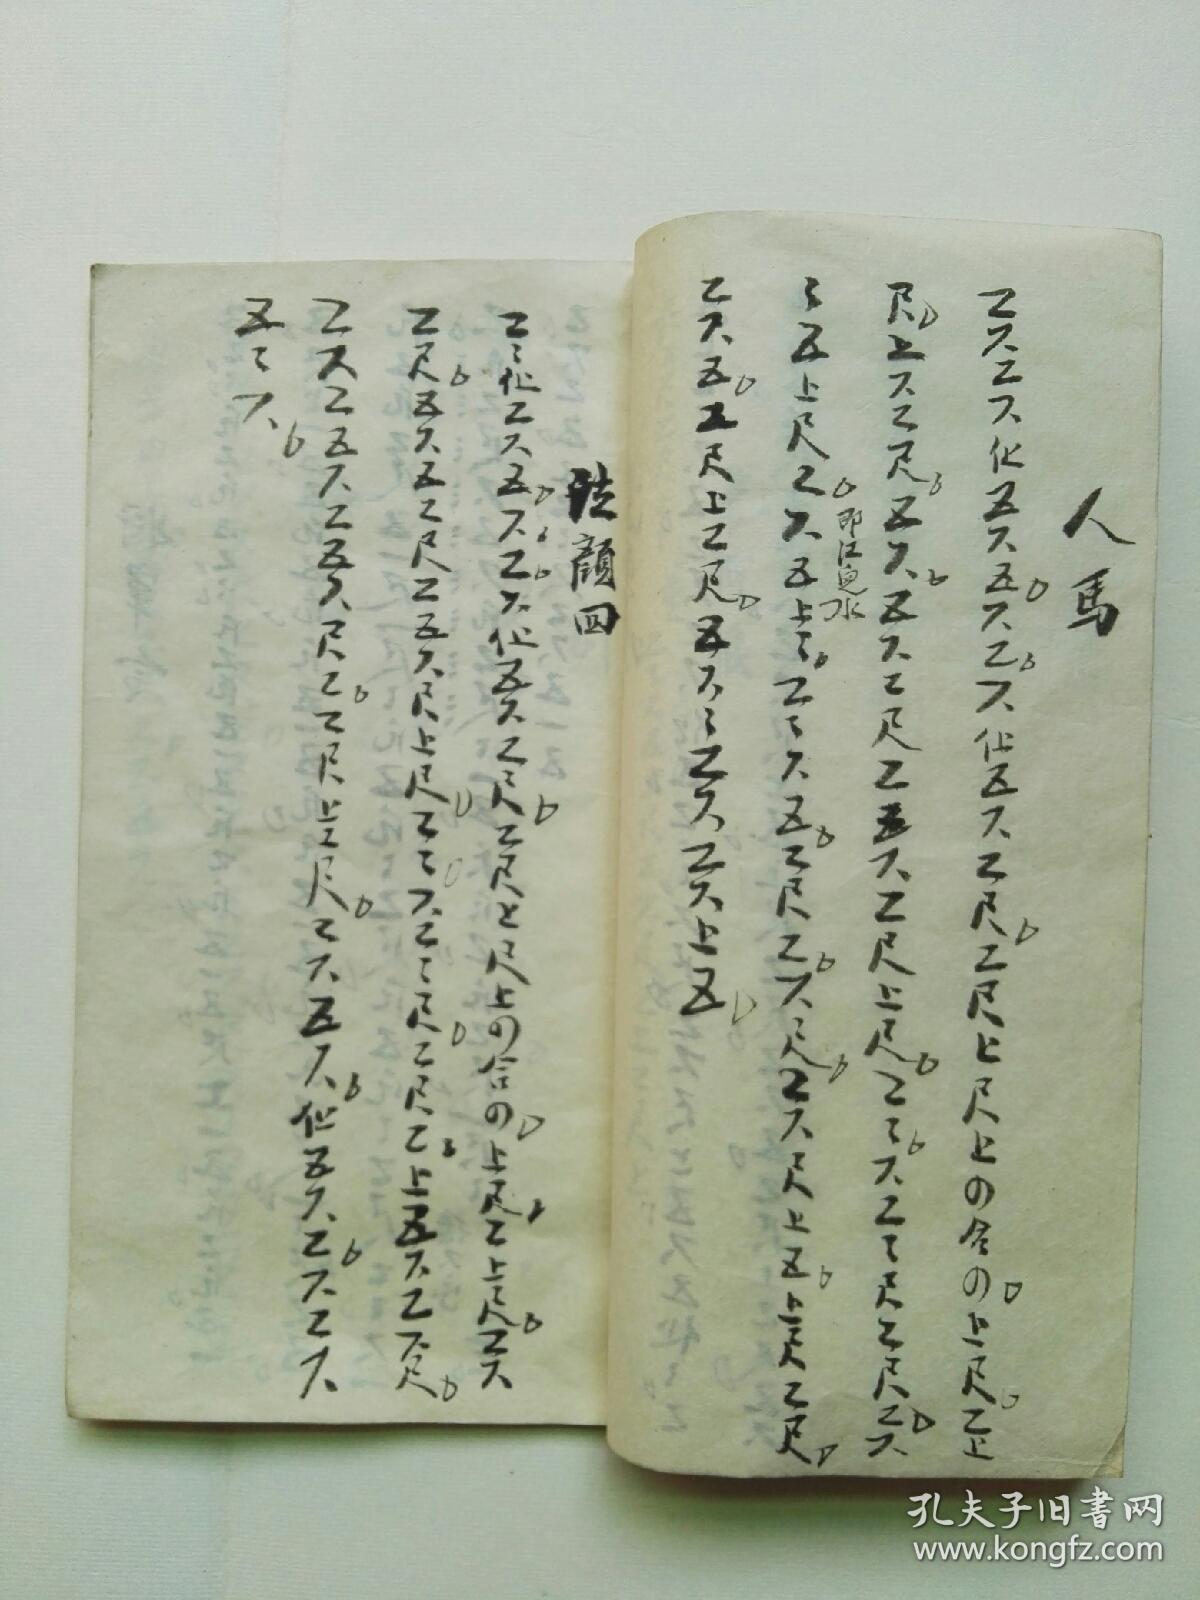 人馬
工六工六化五六五六工六化五六工尺工尺上尺上の合の上尺工上
尺上六工尺五六五六工尺工五六工尺上尺工ミ六工ミ尺工尺工六
ミ五上尺工六五上ミ工ミ六五工尺工六ミ尺工六尺上五上ミ尺工尺
即江兒水
工六五工尺上工尺五六ミ工六工六上五
泣顔回
工ミ化工六五六工六化五六工ミ尺工尺上尺上の合の上尺工上ミ尺工六
工尺五六五工尺工五六尺上尺工ミ六工ミ尺工尺工上五六工六尺
工六工五六工五六尺工工尺上工尺工六五六化五六工六工六
五ミ六
孔夫子旧书网
www.kongfz.com